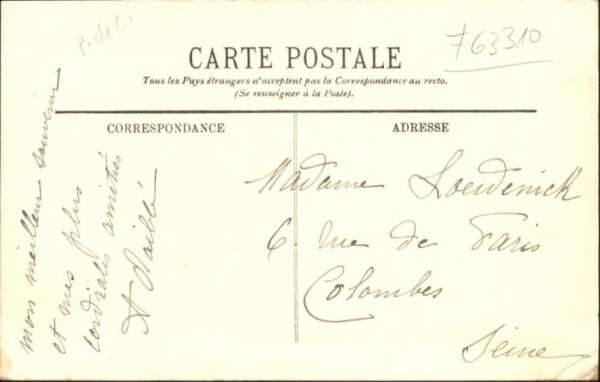 P. de C.
763310
CARTE POSTALE
Tous les Pays étrangers n'acceptent pas la Correspondance au recto.
(Se renseigner à la Poste).
CORRESPONDANCE
mon meilleur souvenir
et mes plus
cordiales amitiés
ADRESSE
Madame
6 rue de Paris
Colombes
Seine